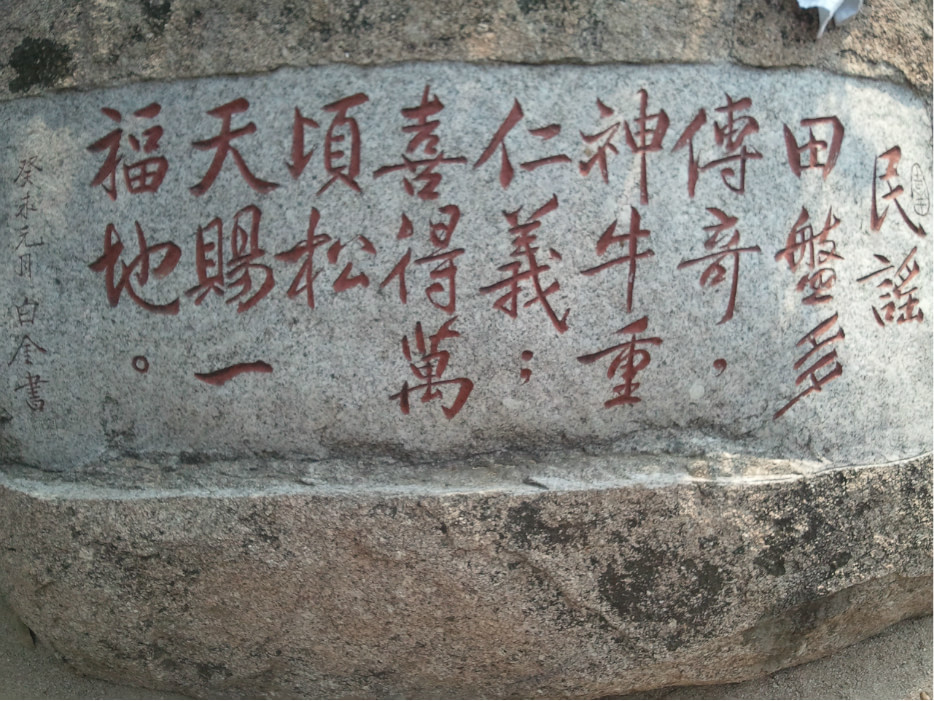 民謠
田盤多
傳奇，
神牛重
仁義；
喜得萬
頃松
天賜一
福地。
癸未元月 白金書